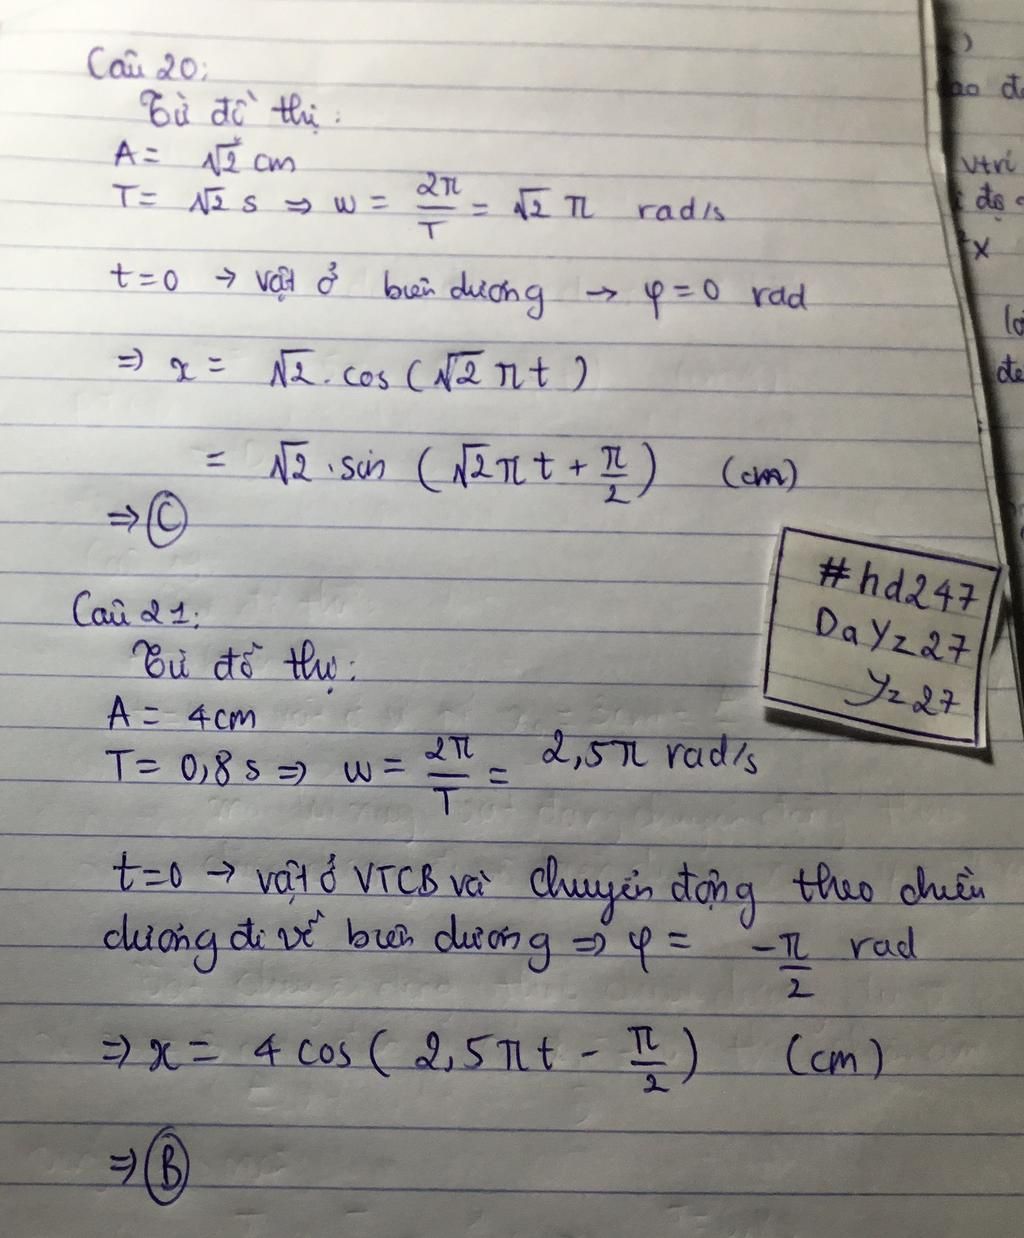 Câu 20:
Từ đồ thị:
A = √2 cm
T = √2 s ⇒ w = 2π/T = √2 π rad/s
t=0 → vật ở biên dương → φ = 0 rad
⇒ x = √2 . cos (√2 πt)
= √2 . sin (√2πt + π/2) (cm)
⇒ C
#hd247
DaYz27
Yz27
Câu 21:
Từ đồ thị:
A = 4cm
T = 0,8 s ⇒ w = 2π/T = 2,5π rad/s
t=0 → vật ở VTCB và chuyển động theo chiều
dương đi về biên dương ⇒ φ = -π/2 rad
⇒ x = 4 cos( 2,5πt - π/2) (cm)
⇒ B
)
đạ
vtrí
x